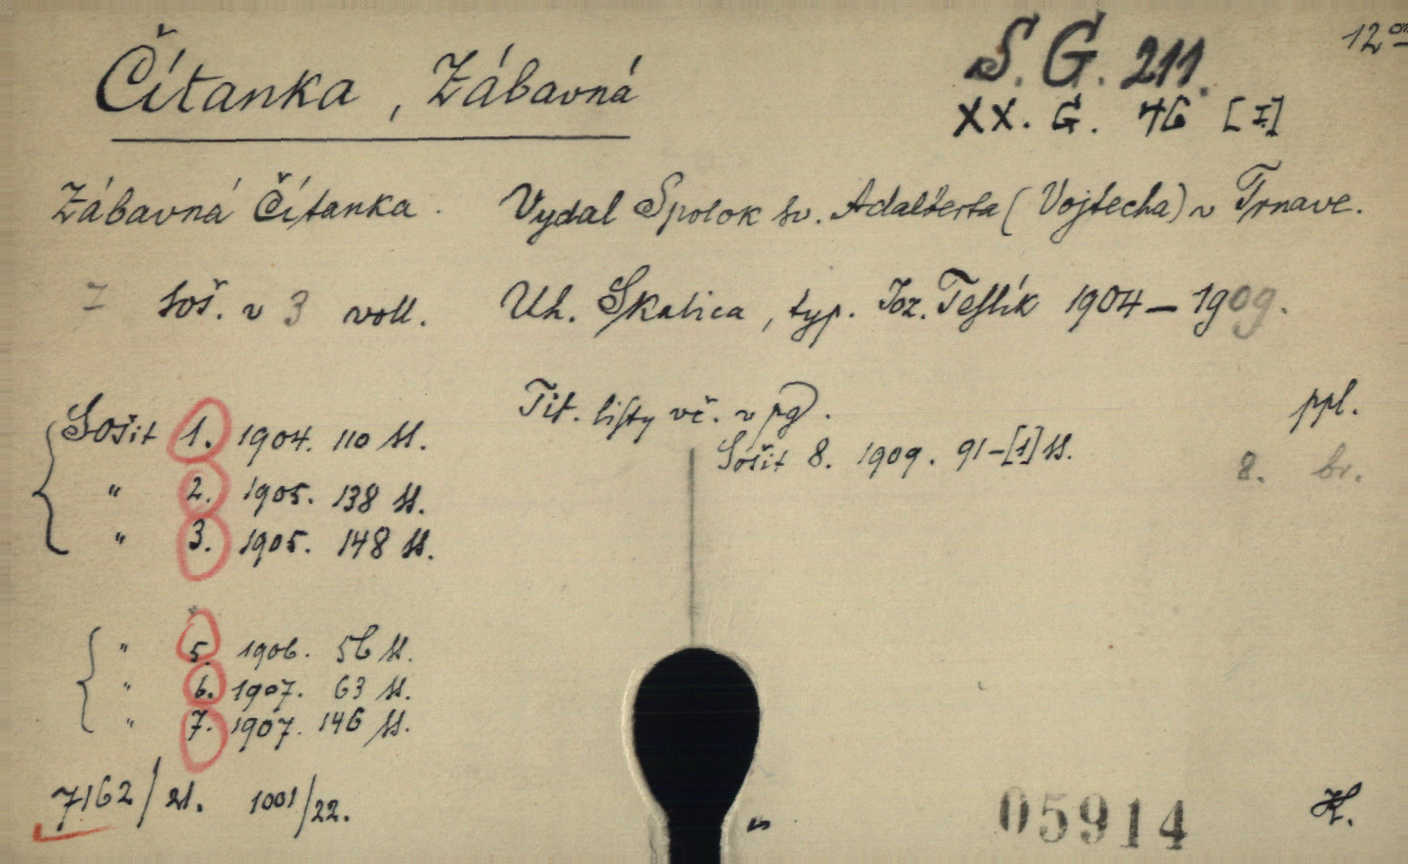 Čítanka, Zábavná
S. G. 211.
12°
XX. G. 46 [I.]
Zábavná Čítanka. Vydal Spolok sv. Adalberta (Vojtecha) v Trnave.
7 soš. v 3 voll. Uh. Skalica, typ. Joz. Teslík 1904–1909.
Sošit 1. 1904. 110 ss.
Tit. listy vč. v pg. ppl.
Sošit 8. 1909. 91–[1] ss. 8. br.
" 2. 1905. 138 ss.
" 3. 1905. 148 ss.
" 5. 1906. 56 ss.
" 6. 1907. 63 ss.
" 7. 1907. 146 ss.
7162/21. 1001/22.
05914
K.